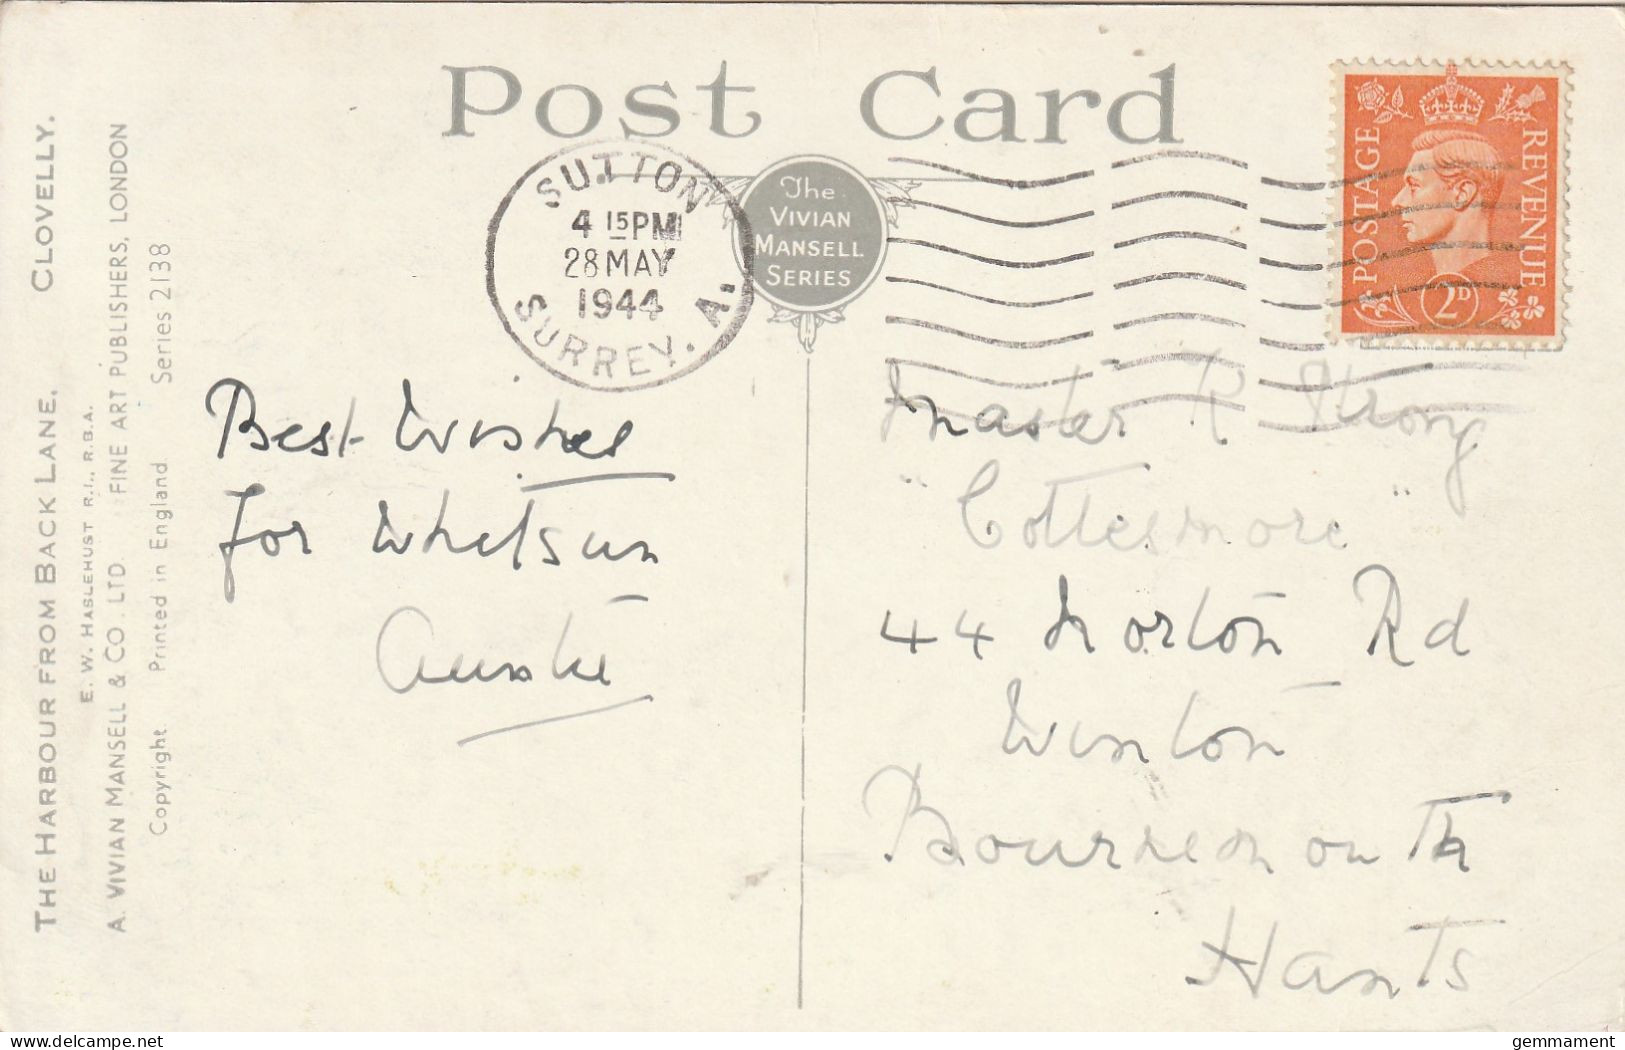 Post Card
The
VIVIAN
MANSELL
SERIES
SUTTON
4 15 PM
28 MAY
1944
SURREY. A.
POSTAGE
REVENUE
2D
THE HARBOUR FROM BACK LANE, CLOVELLY.
E. W. HASLEHUST R.I., R.B.A.
A. VIVIAN MANSELL & CO. LTD. FINE ART PUBLISHERS, LONDON
Copyright. Printed in England Series 2138
Best Wishes
for Whitsun
Auntie
Master R Strong
"Cottesmore"
44 Norton Rd
Winton
Bournemouth
Hants
delcampe.net
gemmament